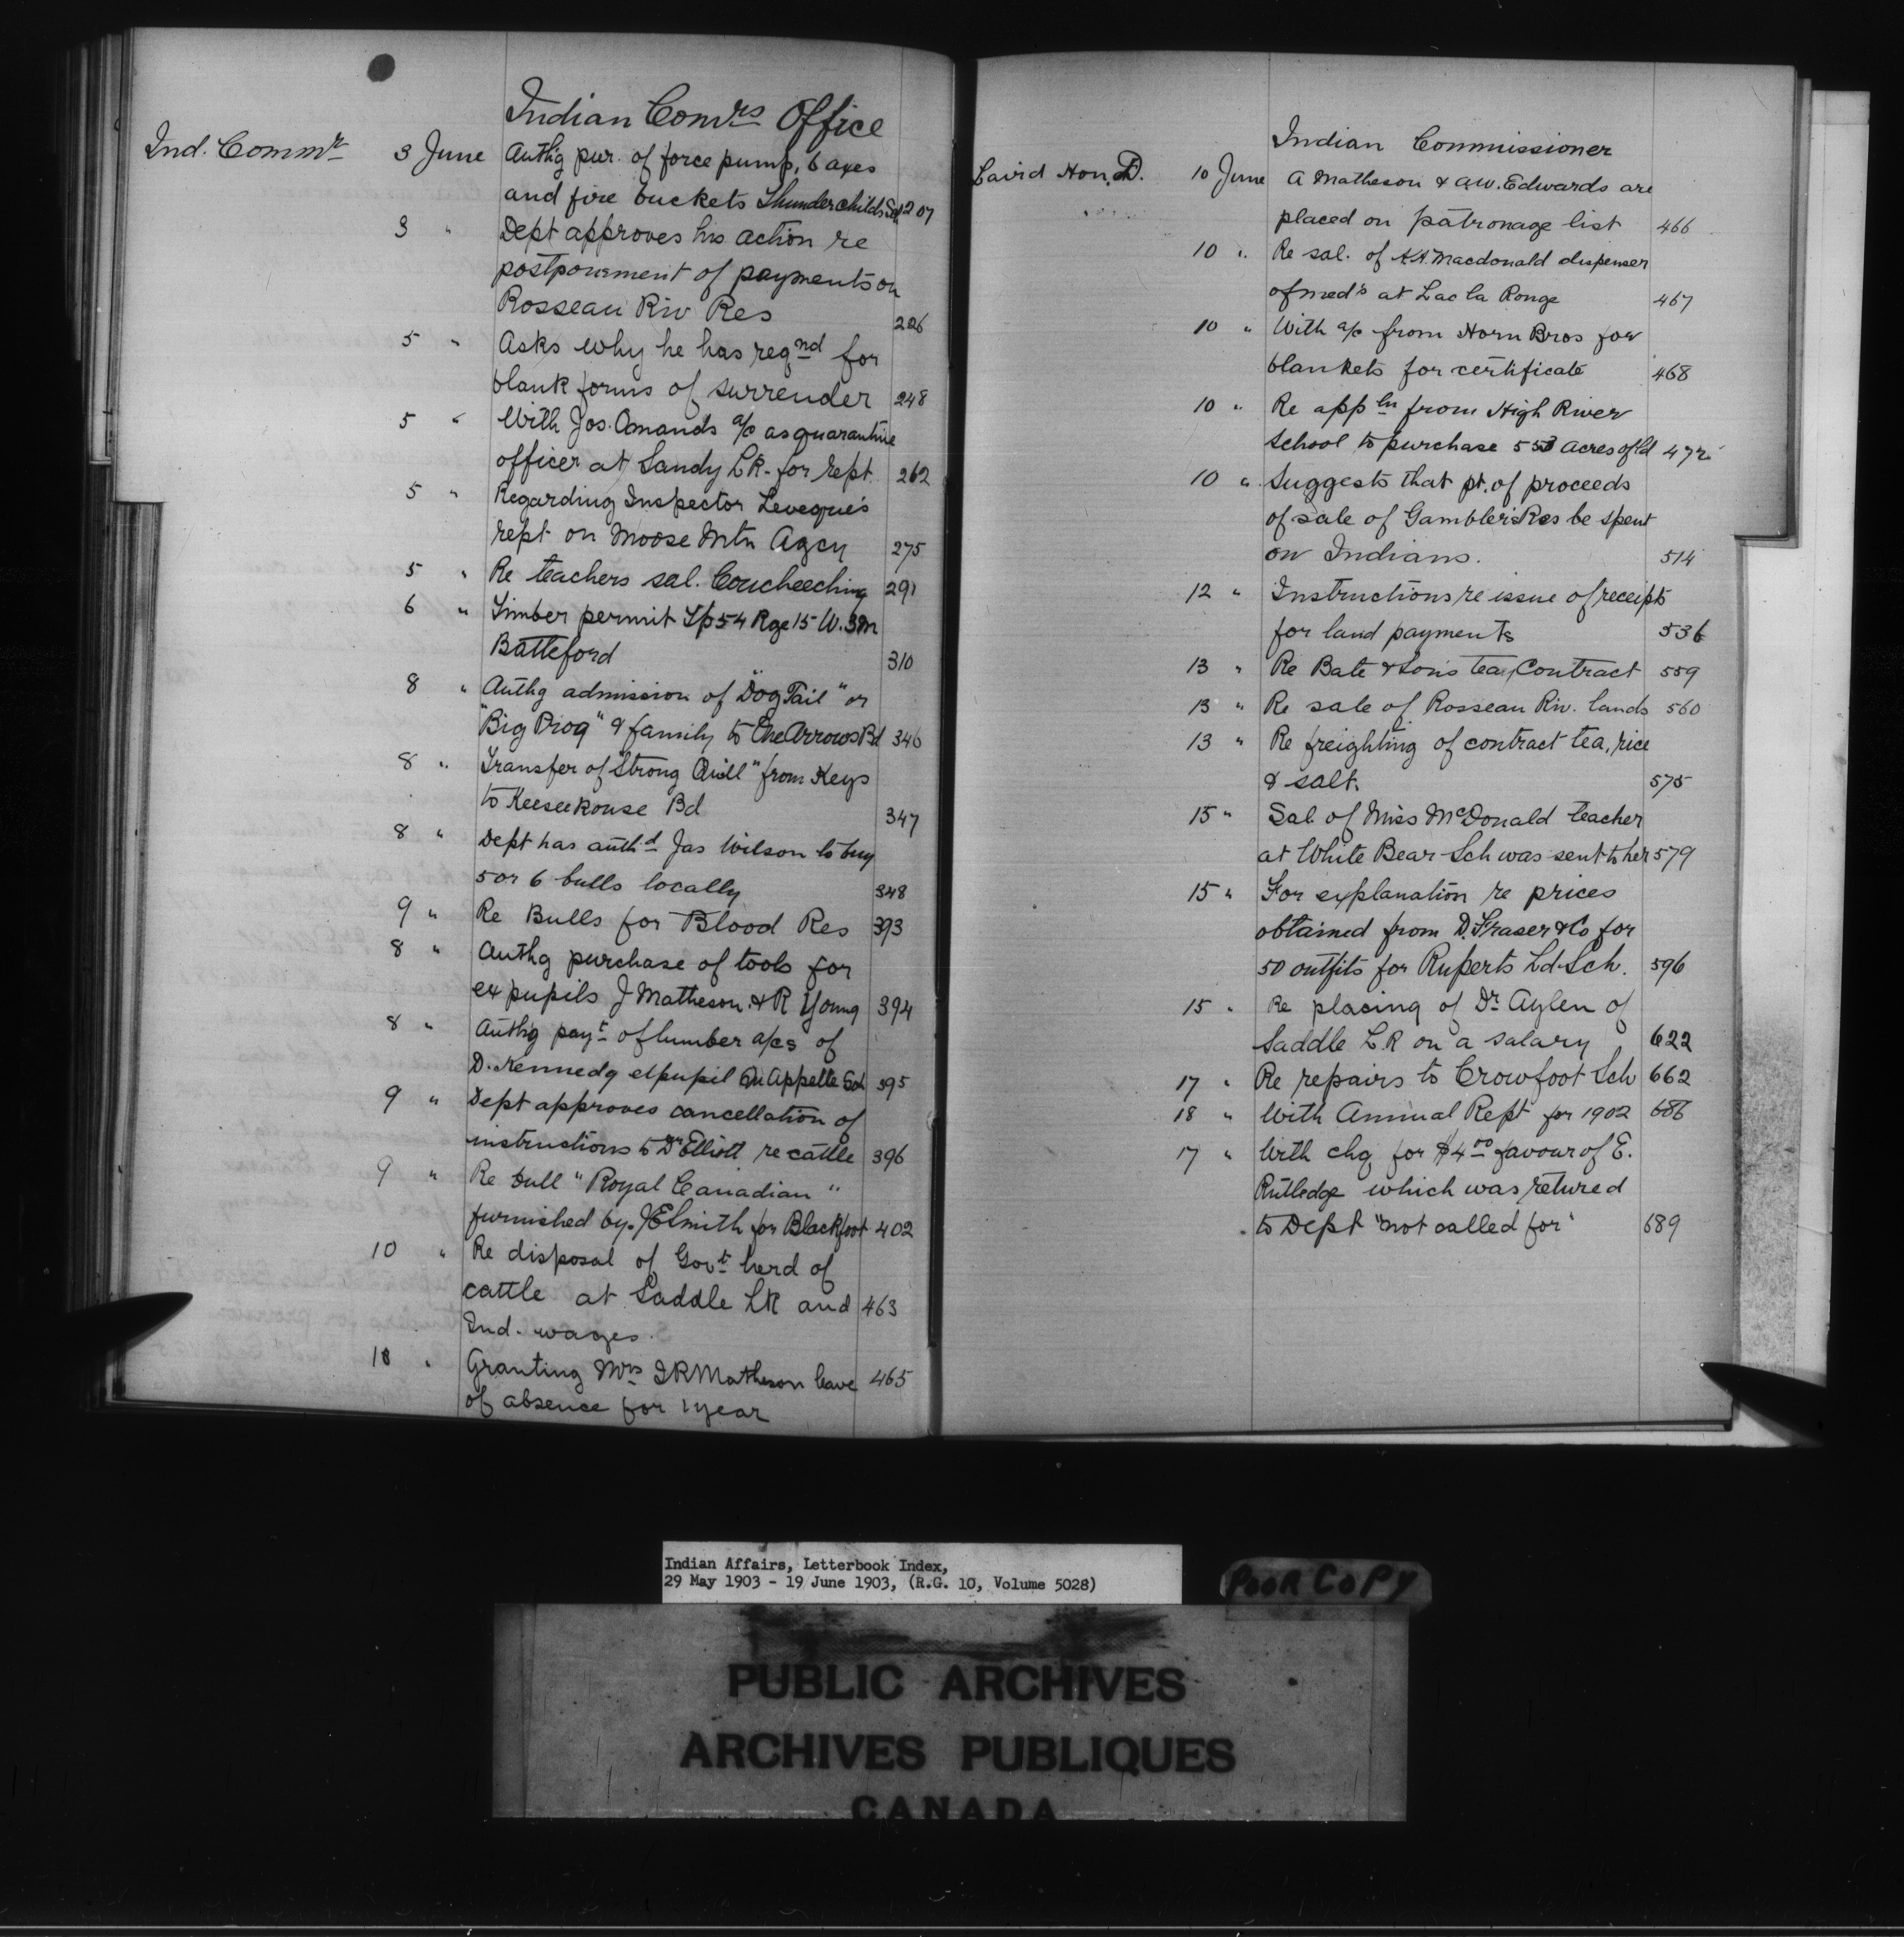 Indian Comrs Office
Ind. Commr 3 June Authg pur. of force pump, 6 axes
and fire buckets Thunderchilds Sch 207
3 " Dept approves his action re
postponement of payments on
Rosseau Riv Res 226
5 " Asks why he has reqnd for
blank forms of surrender 248
5 " With Jos. Omands a/c as quarantine
officer at Sandy LR. for rept. 262
5 " Regarding Inspector Leveque's
rept on Moose Mtn Agcy 275
5 " Re teachers sal. Coucheeching 291
6 " Timber permit Tp 54 Rge 15 W. 3M
Battleford 310
8 " Authg admission of "Dog Tail" or
"Big Prog" & family to One Arrows Bd 346
8 " Transfer of "Strong Quill" from Keys
to Keeseekouse Bd 347
8 " Dept has authd Jas Wilson to buy
5 or 6 bulls locally 348
9 " Re Bulls for Blood Res 393
8 " Authg purchase of tools for
ex pupils J Matheson & R Young 394
8 " Authg payt of lumber a/cs of
D. Kennedy expupil Qu'Appelle Sch 395
9 " Dept approves cancellation of
instructions to Dr Elliott re cattle 396
9 " Re bull "Royal Canadian"
furnished by JE Smith for Blackfoot 402
10 " Re disposal of Govt herd of
cattle at Saddle LR and 463
Ind. wages.
10 " Granting Mrs JR Matheson leave 465
of absence for 1 year
Indian Commissioner
Laird Hon. D. 10 June A Matheson & AW. Edwards are
placed on patronage list 466
10 " Re sal. of Macdonald dispenser
of med's at Lac la Ronge 467
10 " With a/c from Horn Bros for
blankets for certificate 468
10 " Re appln from High River
School to purchase 553 acres of ld 472
10 " Suggests that pt. of proceeds
of sale of Gambler's Res be spent
on Indians. 514
12 " Instructions re issue of receipts
for land payments 536
13 " Re Bate & Sons tea Contract 559
13 " Re sale of Rosseau Riv. lands 560
13 " Re freighting of contract tea, rice
& salt. 575
15 " Sal. of Miss McDonald teacher
at White Bear Sch was sent to her 579
15 " For explanation re prices
obtained from D. Fraser & Co for
50 outfits for Ruperts Ld Sch. 596
15 " Re placing of Dr Aylen of
Saddle L.R on a salary 622
17 " Re repairs to Crowfoot Sch 662
18 " With Annual Rept for 1902 686
17 " With chq for $4.00 favour of E.
Rutledge which was retured
to Dept "not called for" 689
Indian Affairs, Letterbook Index,
29 May 1903 - 19 June 1903, (R.G. 10, Volume 5028)
POOR COPY
PUBLIC ARCHIVES
ARCHIVES PUBLIQUES
CANADA